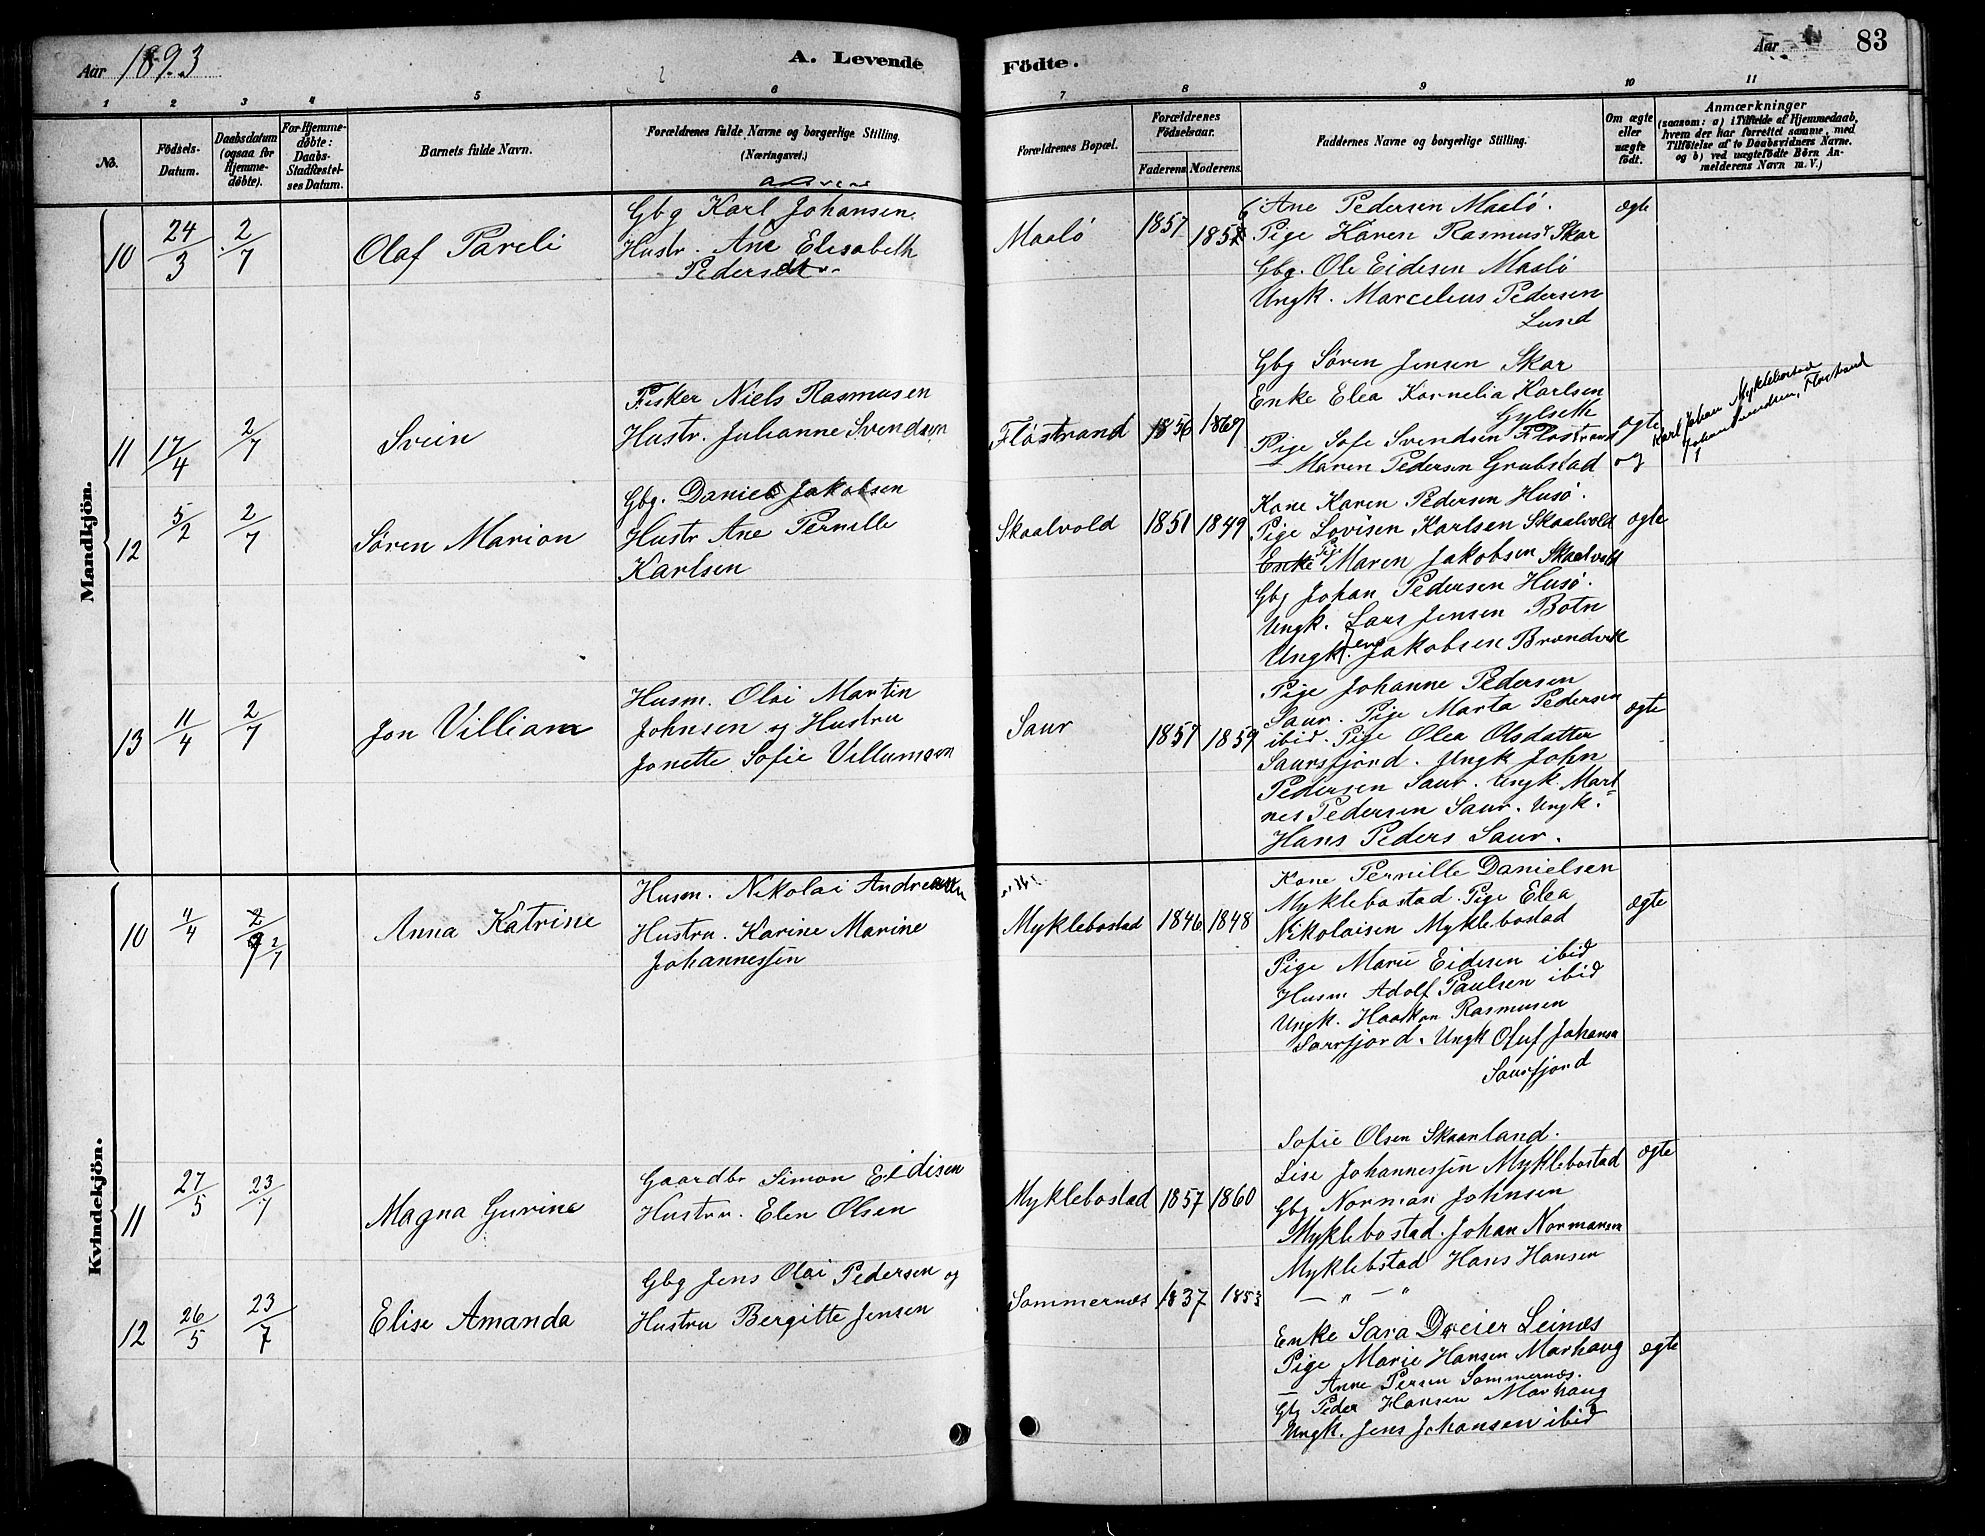 Aar 1893
A. Levende
Födte.
Aar
83
1 2 3 4 5 6 7 8 9 10 11
No.
Födsels-
Datum.
Daabsdatum
(ogsaa for
Hjemme-
døbte).
For Hjemme-
døbte:
Daabs-
Stadfæstel-
ses Datum.
Barnets fulde Navn.
Forældrenes fulde Navne og borgerlige Stilling.
(Næringsvei.)
Forældrenes Bopæl.
Forældrenes
Födselsaar.
Faderens. Moderens.
Faddernes Navne og borgerlige Stilling.
Om ægte
eller
uægte
født.
Anmærkninger
(saasom: a) i Tilfælde af Hjemmedaab,
hvem der har forrettet samme, med
Tilföielse af to Daabsvidners Navne,
og b) ved uægtefödte Börn An-
melderens Navn m. V.)
Mandkjön.
10 24/3 2/7 Olaf Pareli
Gbg Karl Johansen
Hustr. Ane Elisabeth
Pedersen
Maalø 1857 1856
Ane Pedersen Maalø.
Pige Karen Rasmus. Skar
Gbg. Ole Eidesen Maalø
Ungk. Marcelius Pedersen
Lund
ægte
11 17/4 2/7 Svein
Fisker Niels Rasmusen
Hustr. Julianne Svendsen
Fløstrand 1856 1869
Gbg Søren Jensen Skar
Enke Elea Kornelia Karlsen
Gylseth
Pige Sofe Svendsen Flostrand
— Maren Pedersen Grubstad
ægte
og
Karl Johan Myklebostad
Johan Svendsen, Flostrand
12 5/2 2/7 Søren Marion
Gbg. Daniel Jakobsen
Hustr Ane Pernille
Karlsen
Skaalvold 1851 1849
Kone Karen Pedersen Husø.
Pige Lovisen Karlsen Skaalvold
Enke Pige Maren Jakobsen Skaalvold
Gbg Johan Pedersen Husø.
Ungk. Lars Jensen Botn
Ungk. Jens Jakobsen Brandvik
ægte
13 11/4 2/7 Jon Villiam
Husm. Olai Martin
Johnsen og Hustru
Jonette Sofie Villumsen
Saur 1857 1859
Pige Johanne Pedersen
Saur. Pige Marta Pedersen
ibid. Pige Olea Olsdatter
Saursfjord. Ungk John
Pedersen Saur. Ungk. Mart
nes Pedersen Saur. Ungk.
Hans Peders Saur.
ægte
Kvindekjön.
10 4/4 2/7 Anna Katrine
Husm. Nikolai Andreassen
Hustru. Karine Marine
Johannessen
Myklebostad 1846 1848
Kone Pernille Danielsen
Myklebostad. Pige Elea
Nikolaisen Myklebostad
Pige Marie Eidesen ibid
Husm Adolf Paulsen ibid
Ungk. Haakon Rasmusen
Saurfjord. Ungk Oluf Johansn
Saursfjord
ægte
11 27/5 23/7 Magna Gurine
Gaardbr Simon Eidisen
Hustru. Elen Olsen
Myklebostad 1857 1860
Sofie Olsen Skaanland.
Lise Johannessen Myklebostad
Gbg Norman Johnsen
Myklebostad. Johan Normansen
Myklebstad Hans Hansen
— " — "
ægte
12 26/5 23/7 Elise Amanda
Gbg Jens Olai Pedersen og
Hustru Bergitte Jensen
Sommernæs 1837 1853
Enke Sara Dreier Leinæs
Pige Marie Hansen Marhaug
— Anne Persen Sommernæs.
Gbg Peder Hansen Marhaug
Ungk. Jens Johansen ibid
ægte